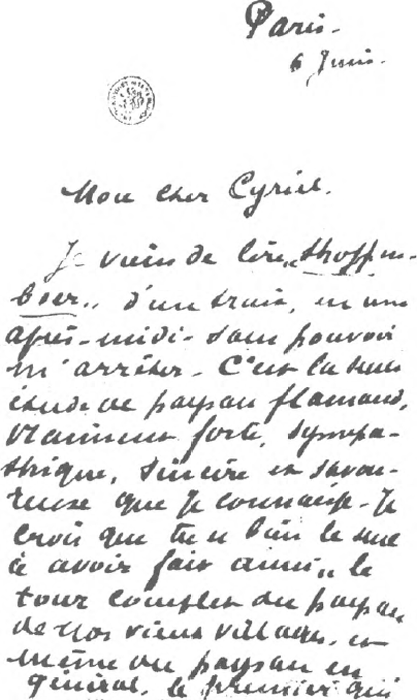 Paris.
6 Juin.
Mon cher Cyriel.
Je viens de lire „thoffen-
boer„ d'un train, en une
après-midi - sans pouvoir
m'arrêter - C'est la seule
étude de paysan flamand,
vraiment forte, sympa-
thique, sincère et savou-
reuse que je connaisse - Je
crois que tu es bien le seul
à avoir fait ainsi„ le
tour complet du paysan
de nos vieux villages, et
même du paysan en
général, le premier qui